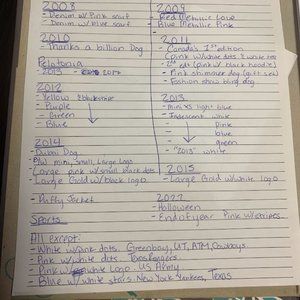 2008
- Denim w/ Pink scarf
- Denim w/ blue scarf
2009
- Red Metallic Love
- Blue Metallic Pink
2010
- Thanks a billion Dog
2011
- Canada's 1st edition
(pink w/white dots & white
1st edt (pink w/ black hoodie)
- Pink shimmer dog (gift set)
- Fashion show bling dog
2013 - 2017
2012
- Yellow
- Purple
- Green
- Blue
2013
- Mini XS light blue
- Iridescent white
pink
blue
green
- "2013" white
2014
- Dubai Dog
B/W mini, Small, Large Logo
- Large pink w/small black dots
- Large Gold w/black logo
2015
- Large Gold w/white logo
- Puffy Jacket
Sports
2022
- Halloween
- End of year Pink w/stripes
All except:
- White w/pink dots. Greenbay, UT, ATM, Cowboys
- Pink w/white dots.
- Pink w/ white Logo. US Army
- Blue w/ white stars. New York Yankees, Texas